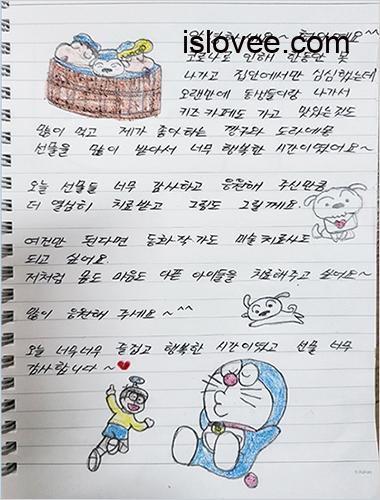 islovee.com
코로나로 인해 한동안 못
나가고 집안에서만 심심했는데
오랜만에 동생들이랑 나가서
키즈카페도 가고 맛있는것도
많이 먹고 제가 좋아하는 짱구와 도라에몽
선물을 많이 받아서 너무 행복한 시간이였어요~
오늘 선물들 너무 감사하고 응원해 주신만큼
더 열심히 치료받고 그림도 그릴게요.
여건만 된다면 동화작가도 미술치료사도
되고 싶어요.
저처럼 몸도 마음도 아픈 아이들을 치료해주고 싶어요~
많이 응원해 주세요~^^
오늘 너무너무 즐겁고 행복한 시간이였고 선물 너무
감사합니다~